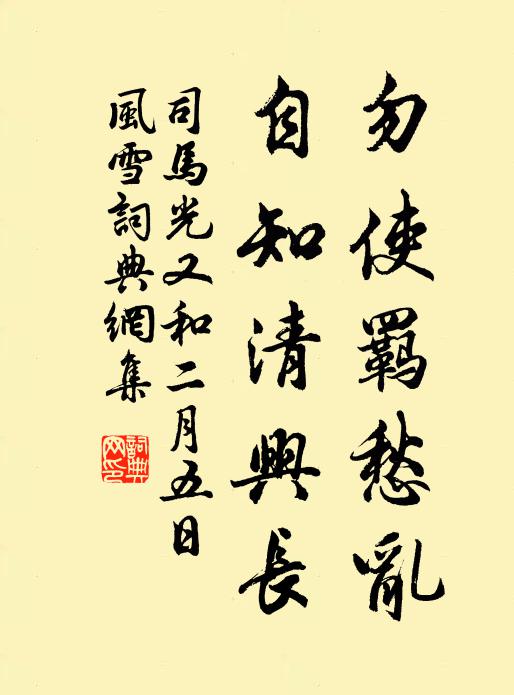 勿使羈愁亂
自知清興長
司馬光又和二月五日
風雪詞典網集
詞典網印